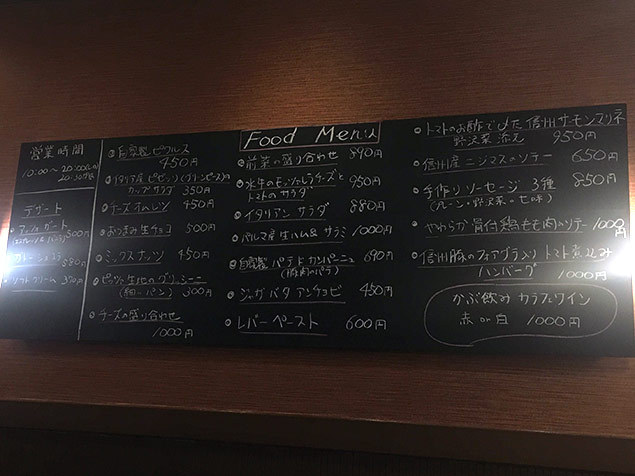 営業時間
10:00~20:00(LO)
デザート
500円
ソフトクリーム
自家製ピクルス
450円
カップサラダ 350円
チーズオムレツ 450円
おつまみ生チョコ 500円
ミックスナッツ 450円
(細~いパン) 300円
チーズの盛り合わせ
1000円
Food Menu
前菜の盛り合わせ 890円
水牛のモッツァレラチーズと
トマトのサラダ 950円
イタリアン サラダ 880円
パルマ産生ハム&サラミ 1000円
自家製 パテ ド カンパーニュ 690円
ジャガ バタ アンチョビ 450円
レバーペースト 600円
トマトのお酢で〆た 信州サーモンマリネ
野沢菜 添え 950円
信州産ニジマスのソテー 650円
手作りソーセージ 3種 850円
(プレーン・野沢菜・七味)
やわらか 骨付鶏もも肉のソテー 1000円
信州豚のフォアグラ入り トマト煮込み
ハンバーグ 1000円
がぶ飲み カラフェワイン
赤 or 白 1000円